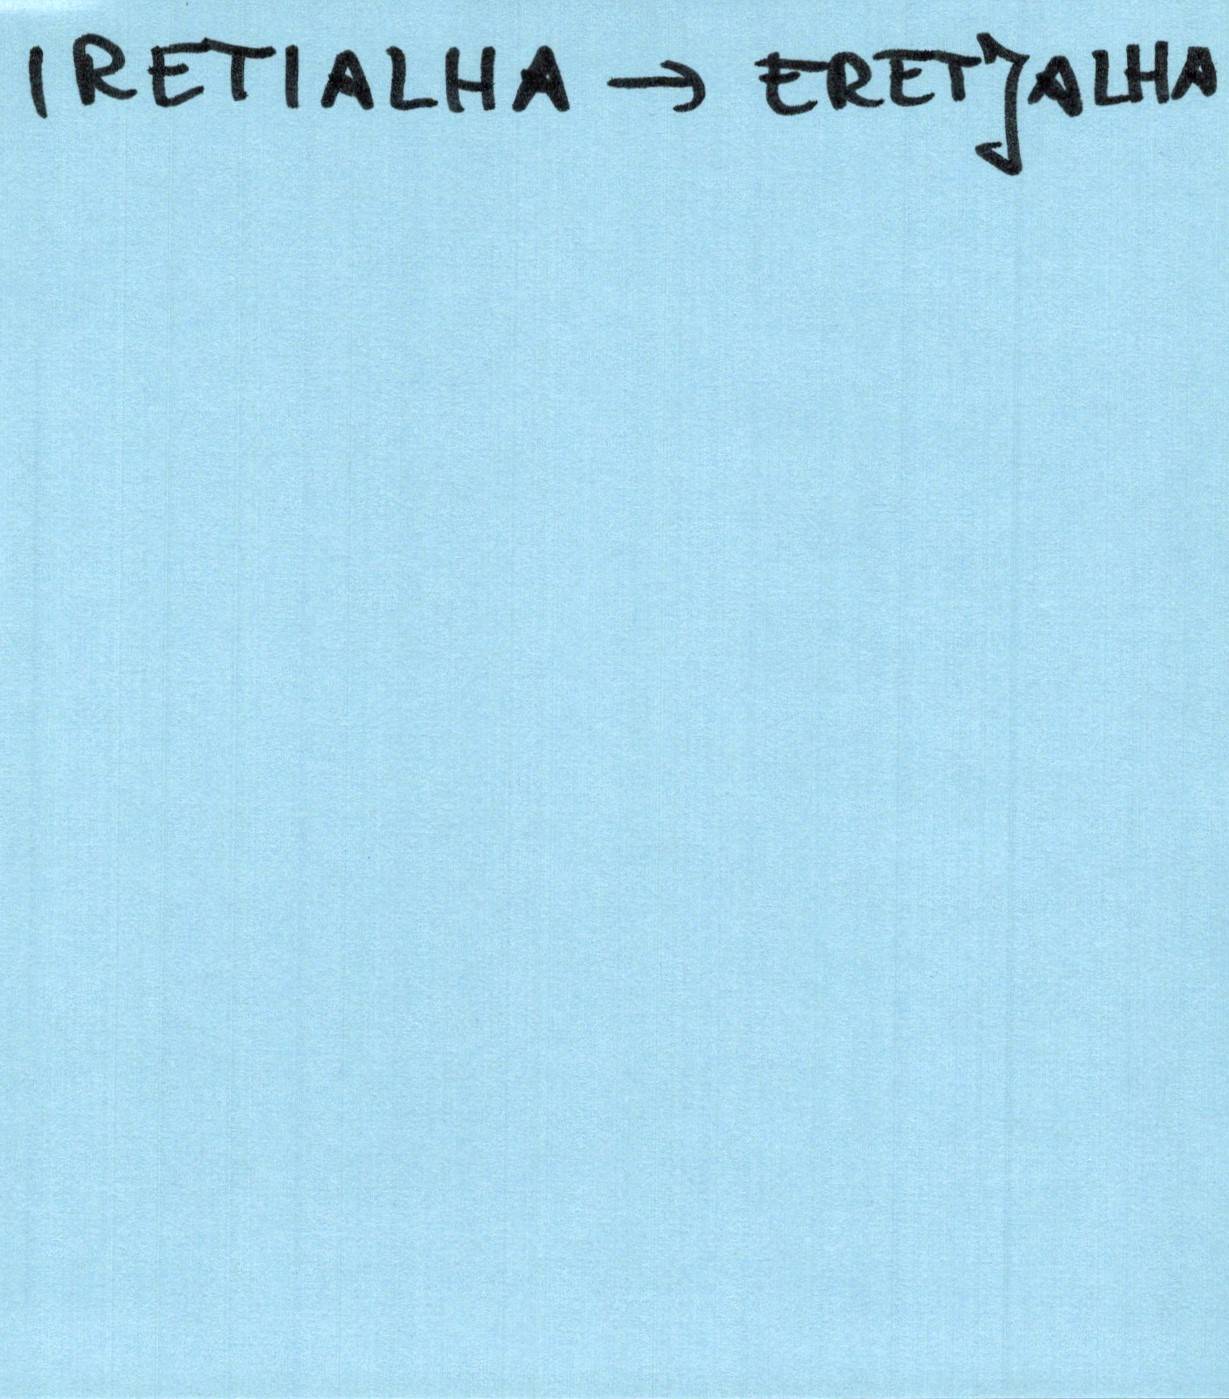 IRETIALHA → ERETJALHA